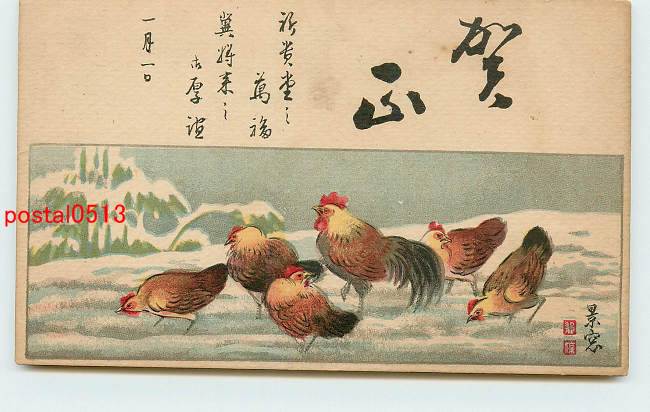 賀
正
祈貴堂之
萬福
冀将来之
御厚誼
一月一日
景窓
postal0513